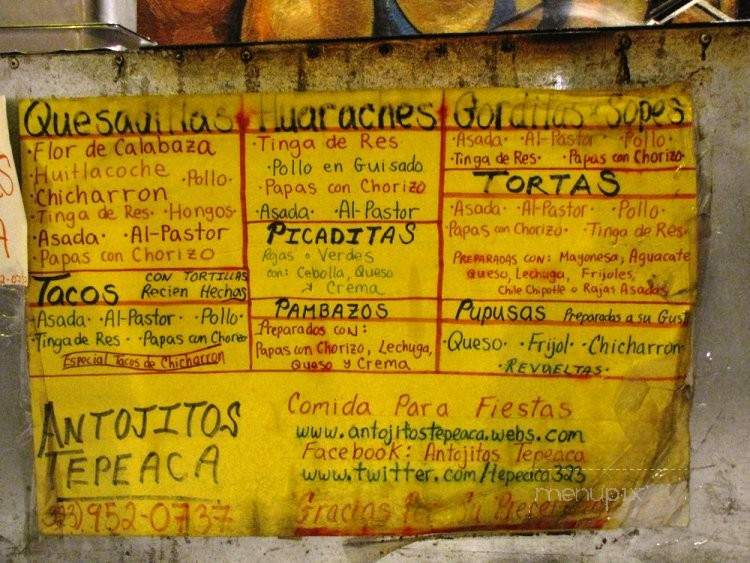 Quesadillas
·Flor de Calabaza
·Huitlacoche
·Pollo·
·Chicharron
·Tinga de Res· ·Hongos·
·Asada· ·Al-Pastor
·Papas con Chorizo
Tacos
con Tortillas
Recien Hechas
·Asada· ·Al-Pastor· ·Pollo·
·Tinga de Res· ·Papas con Chorizo
Especial Tacos de Chicharron
Huaraches
·Tinga de Res·
·Pollo en Guisado
·Papas con Chorizo
·Asada· ·Al-Pastor
Picaditas
Rojas o Verdes
con: Cebolla, Queso
y Crema
Pambazos
Preparados con:
Papas con Chorizo, Lechuga,
Queso y Crema
Gorditas · Sopes
·Asada· ·Al-Pastor· ·Pollo·
·Tinga de Res· ·Papas con Chorizo·
Tortas
·Asada· ·Al-Pastor· ·Pollo·
·Papas con Chorizo· ·Tinga de Res·
Preparadas con: Mayonesa, Aguacate
Queso, Lechuga, Frijoles,
Chile Chipotle o Rajas Asadas
Pupusas Preparadas a su Gust
·Queso· ·Frijol· ·Chicharron·
·Revueltas·
Antojitos
Tepeaca
(323) 952-0737
Comida Para Fiestas
www.antojitostepeaca.webs.com
Facebook: Antojitos Tepeaca
www.twitter.com/tepeaca323
Gracias Por Su
menupix